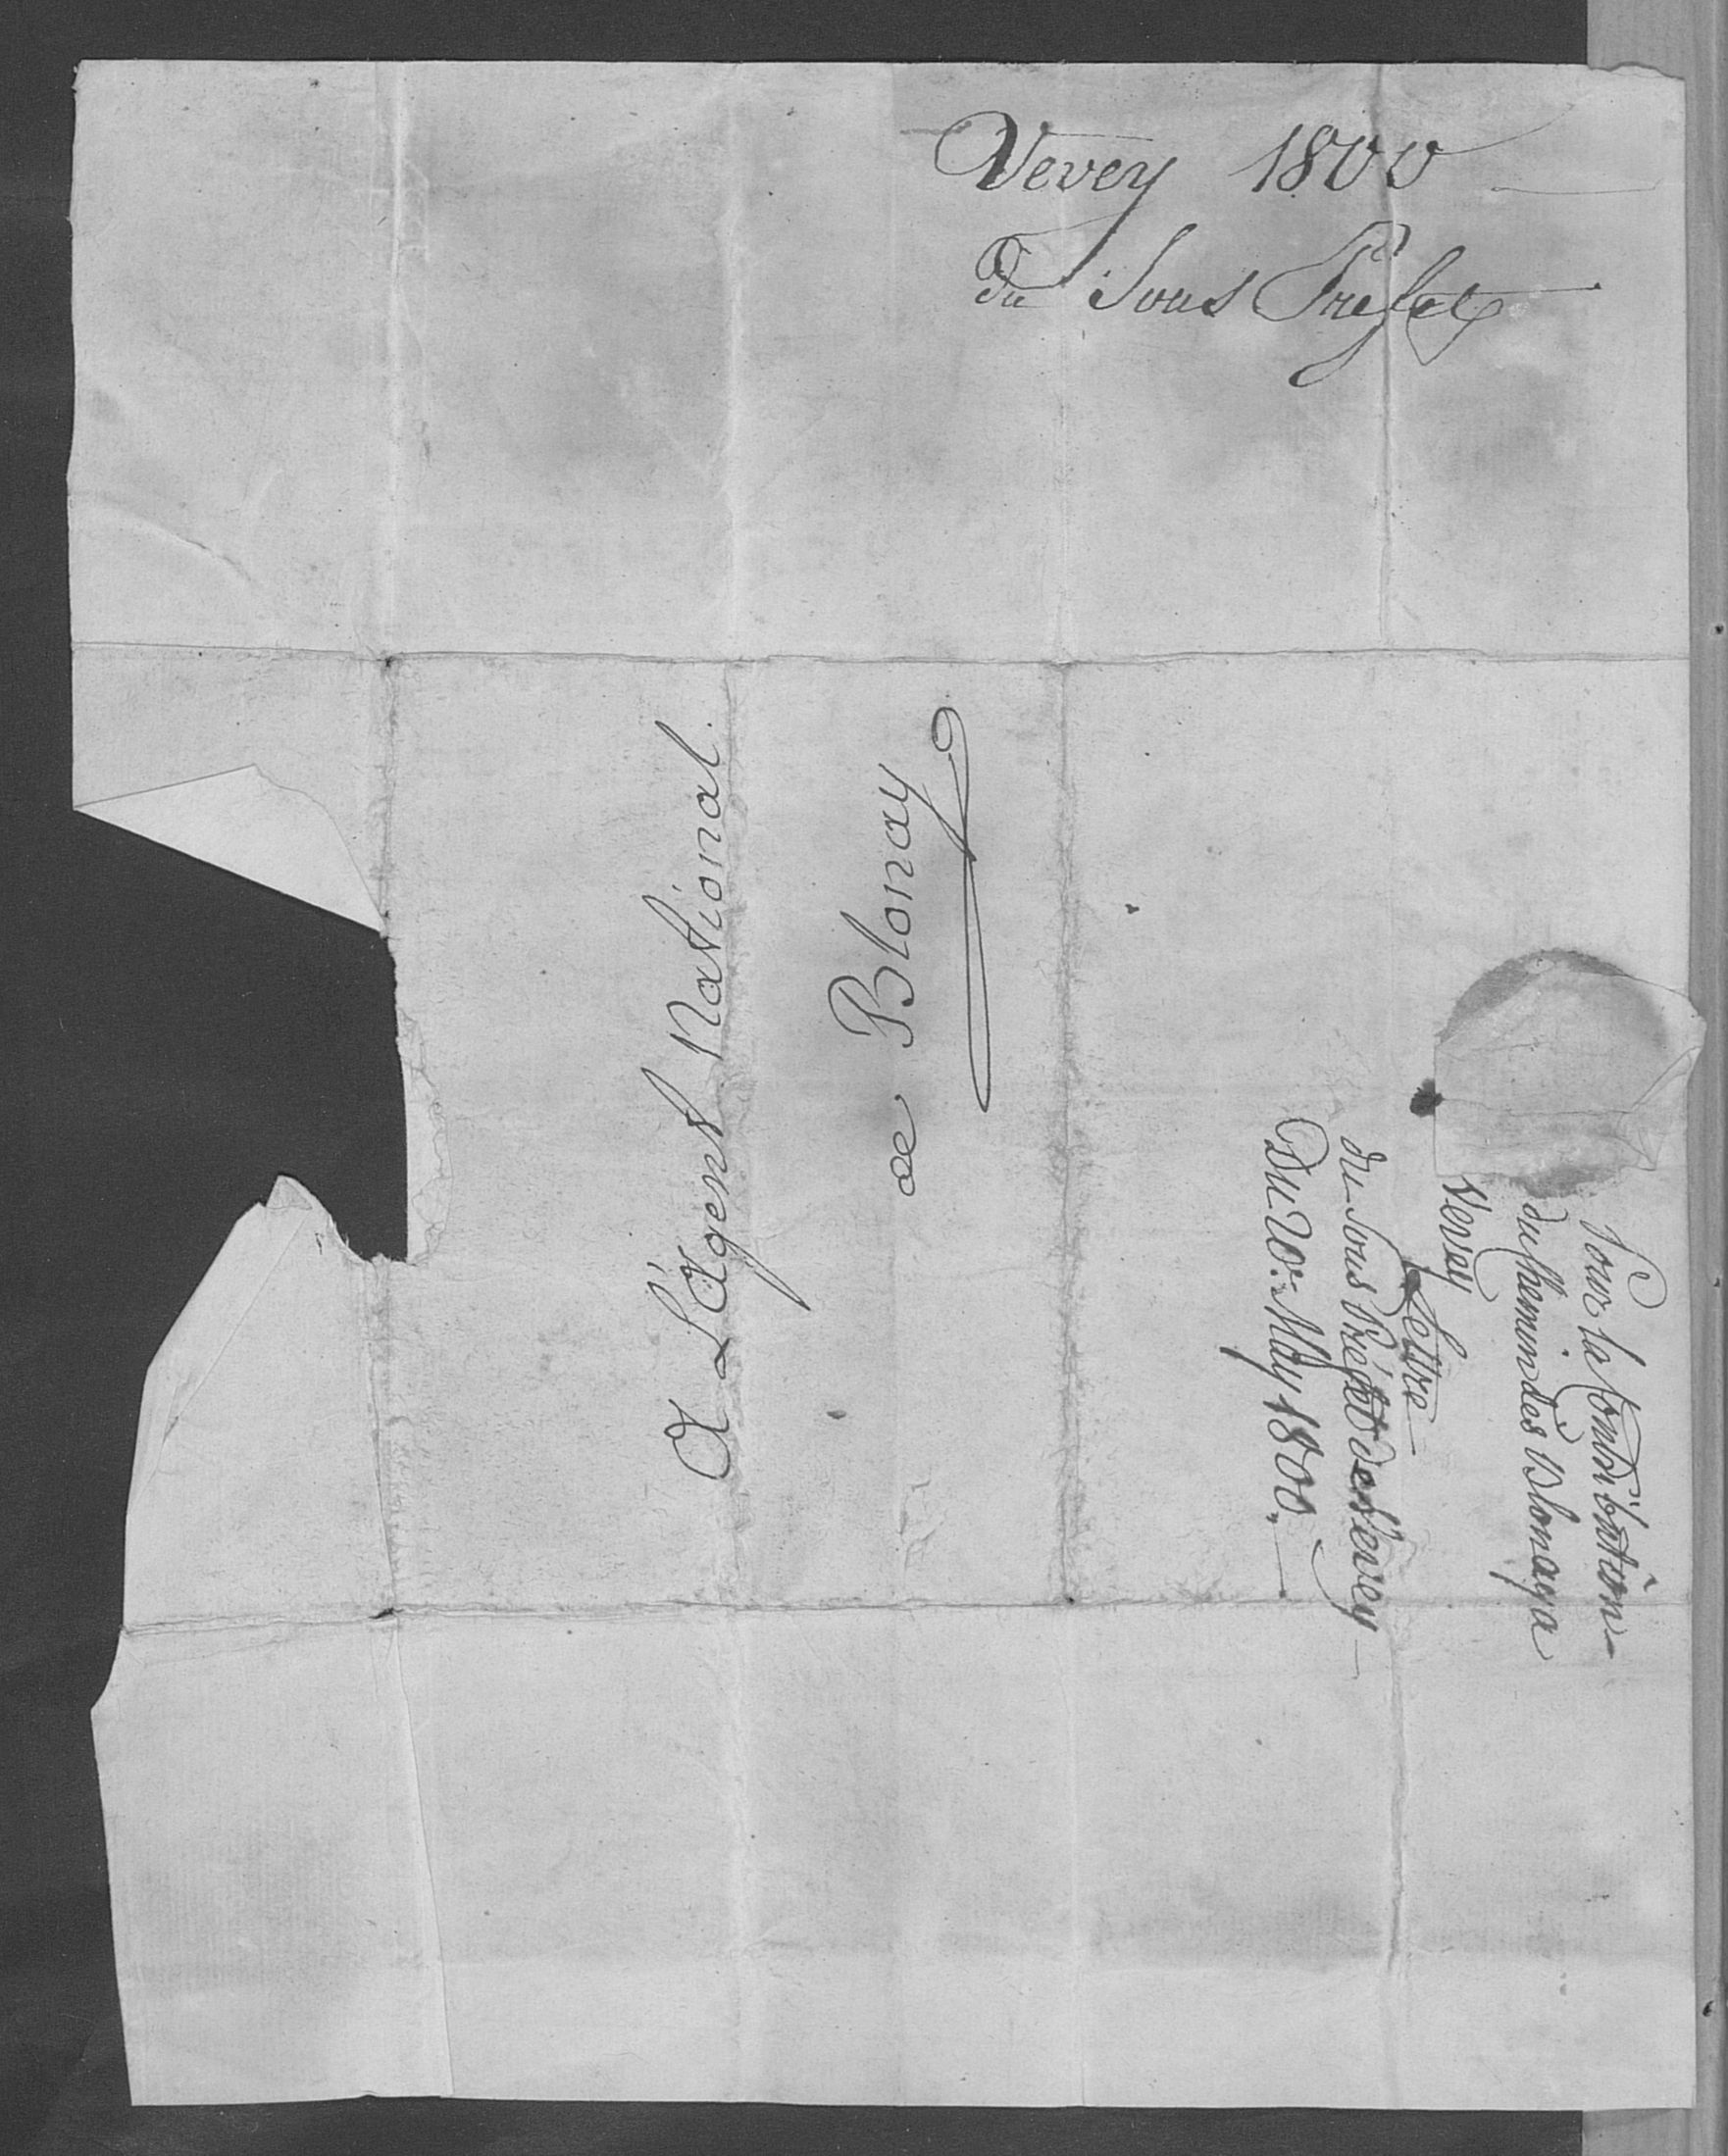 Vevey 1800
du Sous Prefet
A L'agent National
a Blonay
Pour la Contribution
du Chemin dès Blonay a
Vevey
Lettre
du Sous Préfet de Vevey
Du May 1800.